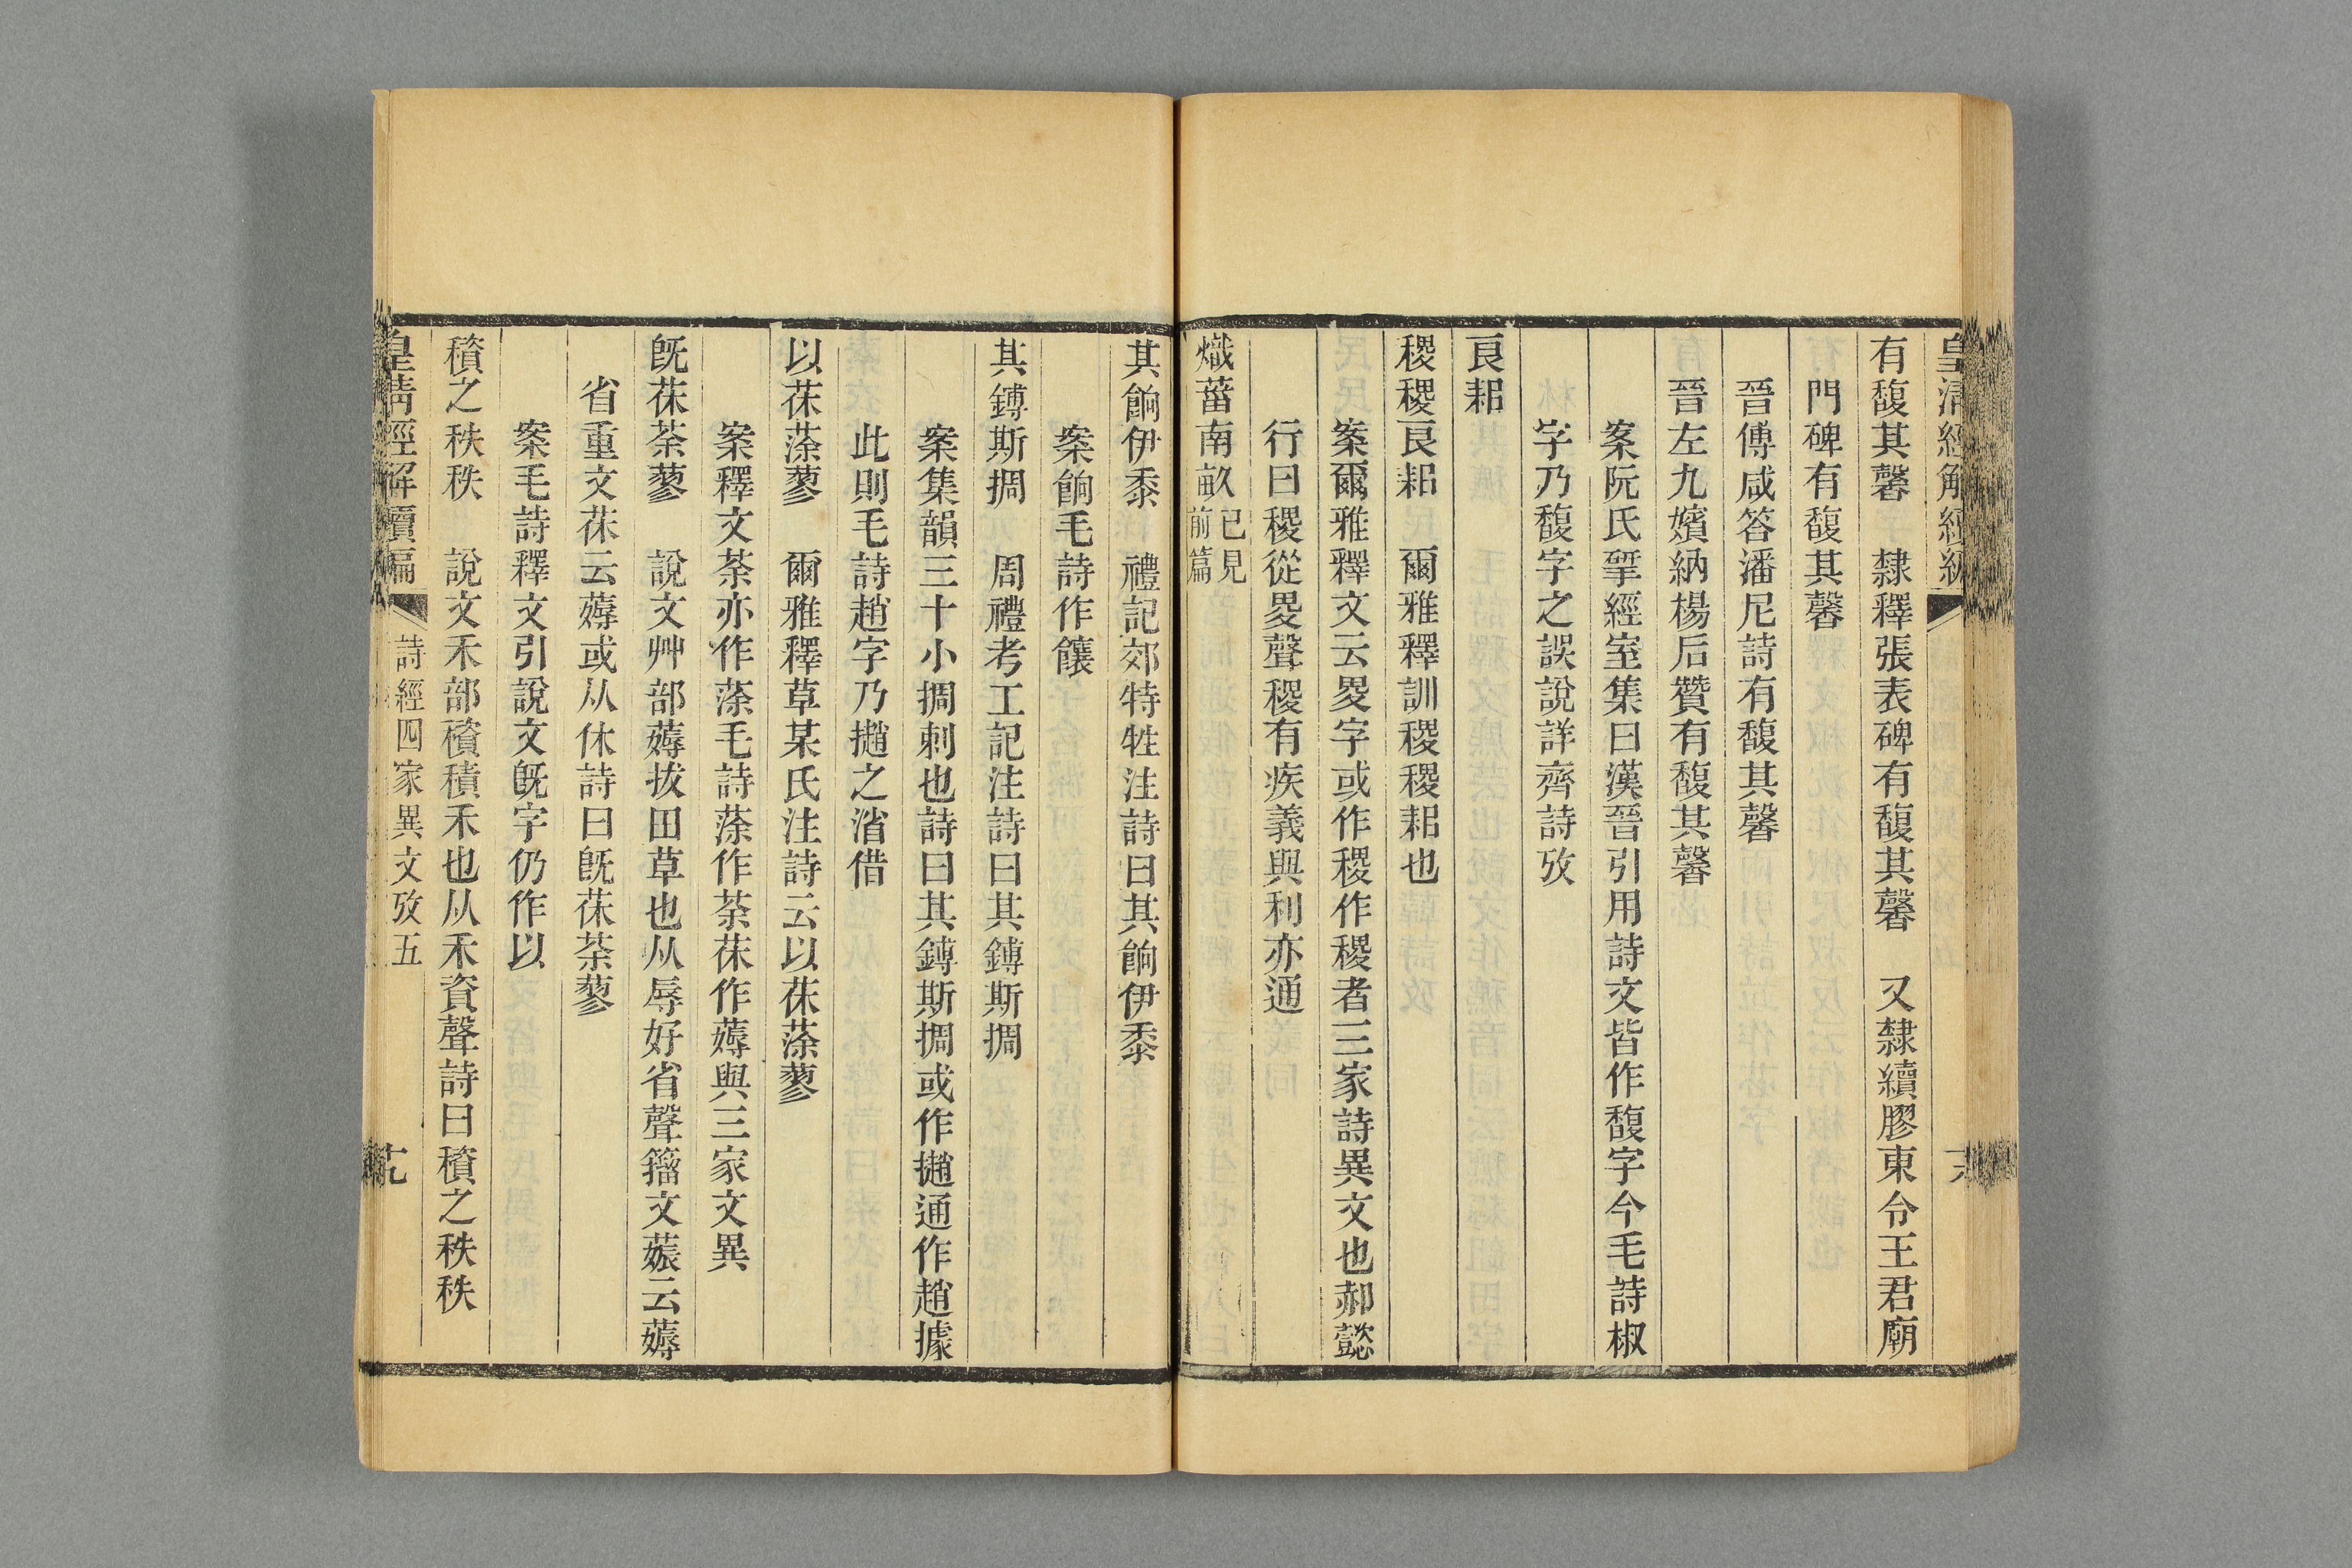 有馥其馨　隸釋張表碑有馥其馨　又隸續膠東令王君廟
門碑有馥其馨
晉傅咸答潘尼詩有馥其馨
晉左九嬪納楊后贊有馥其馨
案阮氏揅經室集曰漢晉引用詩文皆作馥字今毛詩椒
字乃馥字之誤說詳齊詩攷
良耜
稷稷良耜　爾雅釋訓稷稷耜也
案爾雅釋文云畟字或作稷作稷者三家詩異文也郝懿
行曰稷從畟聲稷有疾義與利亦通
熾菑南畝已見前篇
其餉伊黍　禮記郊特牲注詩曰其餉伊黍
案餉毛詩作饟
其鎛斯搁　周禮考工記注詩曰其鎛斯搁
案集韻三十小搁刺也詩曰其鎛斯搁或作㩤通作趙據
此則毛詩趙字乃㩤之渻借
以茠蒤蓼　爾雅釋草某氏注詩云以茠蒤蓼
案釋文荼亦作蒤毛詩蒤作荼茠作薅與三家文異
旣茠荼蓼　說文艸部薅拔田草也从辱好省聲籀文薅云薅
省重文茠云薅或从休詩曰旣茠荼蓼
案毛詩釋文引說文旣字仍作以
穧之秩秩　說文禾部䆅積禾也从禾資聲詩曰䆅之秩秩
皇清經解續編　詩經四家異文攷五　十九